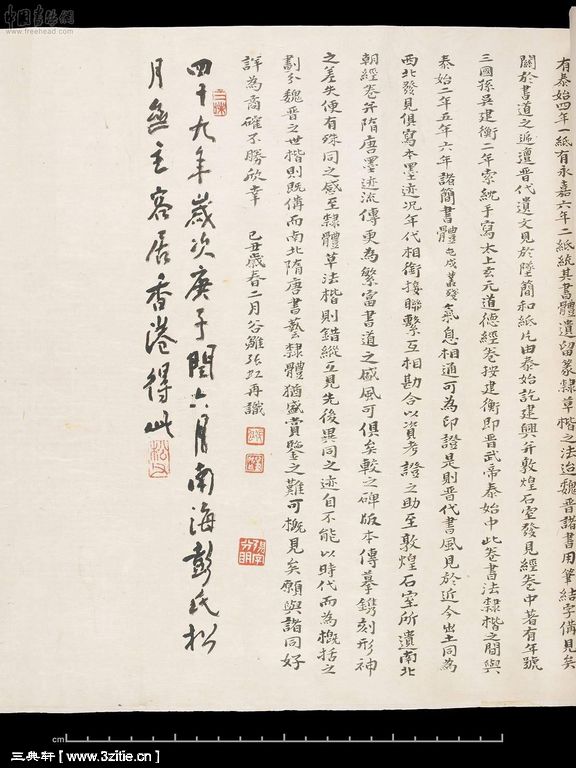 有泰始四年一紙有永嘉六年二紙統其書體遺留篆隸草楷之法迨魏晉諸書用筆結字備見矣
關於書道之遞遭晉代遺文見於墜簡和紙片由泰始訖建興并敦煌石室發見經卷中著有年號
三國孫吳建衡二年索紞手寫太上玄元道德經卷按建衡即晉武帝泰始中此卷書法隸楷之間與
泰始二年五年六年諸簡書體氣息相通可為印證是則晉代書風見於近今出土同為
西北發見俱寫本墨迹况年代相銜接聯繫互相勘合以資考證之助至敦煌石室所遺南北
朝經卷并隋唐墨迹流傳更為繁富書道之盛風可俱矣較之碑版本傳摹鐫刻形神
之差失便有殊同之感至隸體草法楷則錯縱互見先後異同之迹自不能以時代而為概括之
劃分魏晉之世楷則既備而南北隋唐書藝隸體猶盛賞鑒之難可概見矣願與諸同好
詳為商確不勝欣幸 己丑歲春二月谷雛張虹再識
四十九年歲次庚子閏六月南海彭氏松
月盦主客居香港得此
中國書法網
www.freehead.com
cm
三典軒【www.3zitie.cn】